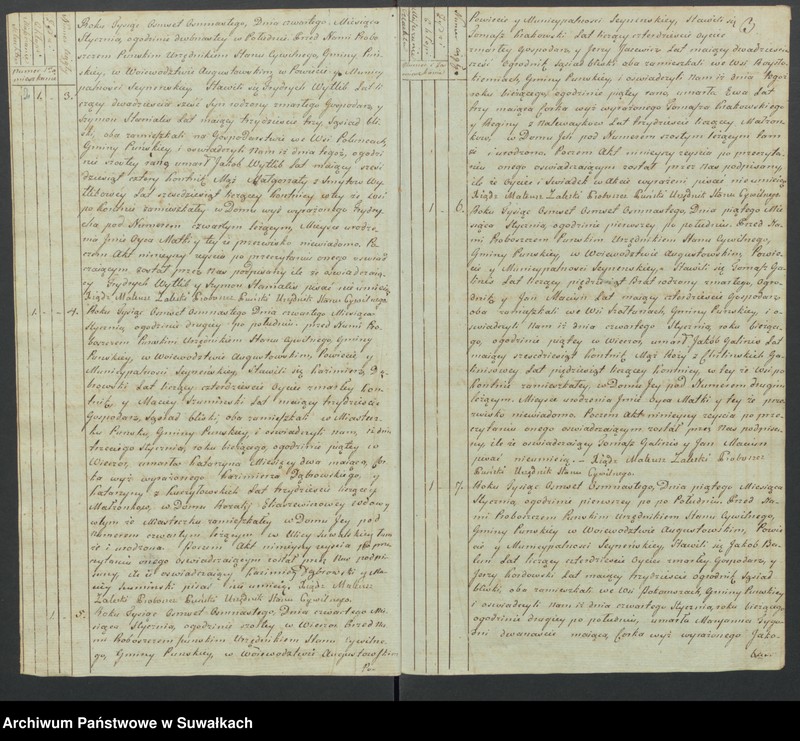 Roku Tysiąc Osmset Osmnastego, Dnia czwartego Miesiąca
Stycznia, ogodzinie dwónastey w Południe. Przed Nami Probo
szczem Puńskim Urzędnikiem Stanu Cywilnego, Gminy Puń
skiey, w Woiewództwie Augustowskim, w Powiecie y Municy
palności Seyneńskiey. Stawili się Jędrzych Wytlib Lat li
1. 3. czący dwadzieścia sześć Syn rodzony zmarłego Gospodarz, y
Szymon Staniulis Lat maiący trzydzieście trzy, Sąsiad bli
ski, oba zamieszkali na Gospodarstwie we Wsi Poluncach,
Gminy Puńskiey, i oswiadczyli Nam iż dnia tegoż, ogodzi
nie szóstey rano, umarł Jakob Wytlib Lat maiący sześć
dziesiąt cztery kontnik, Mąż Małgorzaty z
Lat sześdziesiąt liczącey kontnicy w tey że Wsi
po kontnie zamieszkały, w Domu wyż wyrażonego Jędry
cha pod Numerem czwartym leżącym, Mieysce urodze
nia Imie Oyca Matki y tey że przezwisko niewiadome. Po
czem Akt ninieyszy zeycia po przeczytaniu onego oświad
czaiącym został przez Nas podpisany, ile że oświadczaią
cy Jędrych Wytlib y Szymon Staniulis pisać nieumieią.
Xiądz Mateusz Zaleski Proboszcz Puński Urzędnik Stanu Cywilnego.
1. 4. Roku Tysiąc Osmset Osmnastego Dnia czwartego Miesiąca
Stycznia, ogodzinie drugiey po południu, przed Nami Pro
boszczem Puńskim Urzędnikiem Stanu Cywilnego, Gminy
Puńskiey, w Woiewództwie Augustowskim, Powiecie y
Municypalności Seyneńskiey, Stawili się Kazimierz Dą
browski Lat liczący czterdzieście Oyciec zmarłey kon
tnik, y Maciey Szuminski Lat maiący trzydzieście
Gospodarz, Sąsiad bliski, oba zamieszkali w Miastecz
ku Puńsku, Gminy Puńskiey i oswiadczyli nam, iż dnia
trzeciego Stycznia, roku bieżącego, ogodzinie piątey w
Wieczór, umarła Katarzyna Miesięcy dwa maiąca, Cór
ka wyż wyrażonego Kazimierza Dąbrowskiego, y
Katarzyny z Lat trzydzieście liczącey
Małżonków, w Domu Rozalii wdowy
w tym że Miasteczku zamieszkałey w Domu Jey pod
Numerem czwartym leżącym w Ulicy Suwalskiey tam
że i urodzona. Poczem Akt ninieyszy zeycia po prze
czytaniu onego oświadczaiącym został przez Nas podpi
sany, ile że oświadczaiący Kazimierz Dąbrowski y Ma
ciey Szuminski pisać nieumieią, Xiądz Mateusz
Zaleski Proboszcz Puński Urzędnik Stanu Cywilnego.
1 5. Roku Tysiąc Osmset Osmnastego, Dnia czwartego Mie
siąca Stycznia, ogodzinie szóstey w Wieczór. Przed Na
mi Proboszczem Puńskim Urzędnikiem Stanu Cywilne
go, Gminy Puńskiey, w Woiewództwie Augustowskim
Po
3
Powiecie y Municypalności Seyneńskiey, Stawili się
Tomasz Krakowski Lat liczący czterdzieście Oyciec
zmarłey Gospodarz y Jerzy Lat maiący dwadzieścia
sześć Ogrodnik, Sąsiad bliski aba zamieszkali we Wsi
Gminy Puńskiey, i oswiadczyli Nam iż dnia tegoż
roku bieżącego, ogodzinie piątey rano, umarła Ewa Lat
trzy maiąca Córka wyż wyrażonego Tomasza Krakowskiego
y Reginy z Lat trzydzieście liczącey Małżon
ków, w Domu Jch pod Numerem szóstym leżącym tam
że i urodzona. Poczem Akt ninieyszy zeycia po przeczyta
niu onego oswiadczaiącym został przez Nas podpisany,
ile że Oyciec i Świadek w Akcie wyrażeni pisać nieumieią
Xiądz Mateusz Zaleski Proboszcz Puński Urzędnik Stanu Cywilnego.
1 6. Roku Tysiąc Osmset Osmnastego, Dnia piątego Mie
siąca Stycznia, ogodzinie pierwszey po południu. Przed Na
mi Proboszczem Puńskim Urzędnikiem Stanu Cywilnego,
Gminy Puńskiey, w Woiewództwie Augustowskim Powie
cie y Municypalności Seyneńskiey, Stawili się Tomasz Ga
linis Lat liczący pięćdziesiąt Brat rodzony zmarłego, Ogro
dnik, y Jan Maciun Lat maiący czterdzieście Gospodarz
oba zamieszkali we Wsi Szołtanach, Gminy Puńskiey, i o
swiadczyli Nam iż dnia czwartego Stycznia, roku bieżące
go, ogodzinie piątey w Wieczór, umarł Jakób Galinis Lat
maiący sześćdziesiąt kontnik, Mąż Róży z Ga
linisowey Lat pięćdziesiąt liczącey kontnicy, w tey że Wsi po
kontnie zamieszkały, w Domu Jey pod Numerem drugim
leżącym. Mieysce urodzenia Jmie Oyca Matki y tey że prze
zwisko niewiadome. Poczem Akt ninieyszy zeycia po prze
czytaniu onego oświadczaiącym został przez Nas podpisa
ny, ile że oświadczaiący Tomasz Galinis y Jan Maciun
pisać nieumieią. Xiądz Mateusz Zaleski Proboszcz
Puński Urzędnik Stanu Cywilnego.
1 7. Roku Tysiąc Osmset Osmnastego, Dnia piątego Miesiąca
Stycznia, ogodzinie pierwszey po po Południu. Przed Na
mi Proboszczem Puńskim Urzędnikiem Stanu Cywilnego,
Gminy Puńskiey w Woiewództwie Augustowskim, Powie
cie y Municypalności Seyneńskiey, Stawili się Jakób Ba
luni Lat liczący czterdzieście Oyciec zmarłey Gospodarz, y
Jerzy Lat maiący trzydzieście ogrodnik, Sąsiad
bliski, oba zamieszkali we Wsi Gminy Puńskiey
i oswiadczyli Nam iż dnia czwartego Stycznia, roku bieżącego,
ogodzinie drugiey po południu, umarła Maryanna Tygo
dni dwanaście maiąca, Córka wyż wyrażonego Jako
Archiwum Państwowe w Suwałkach